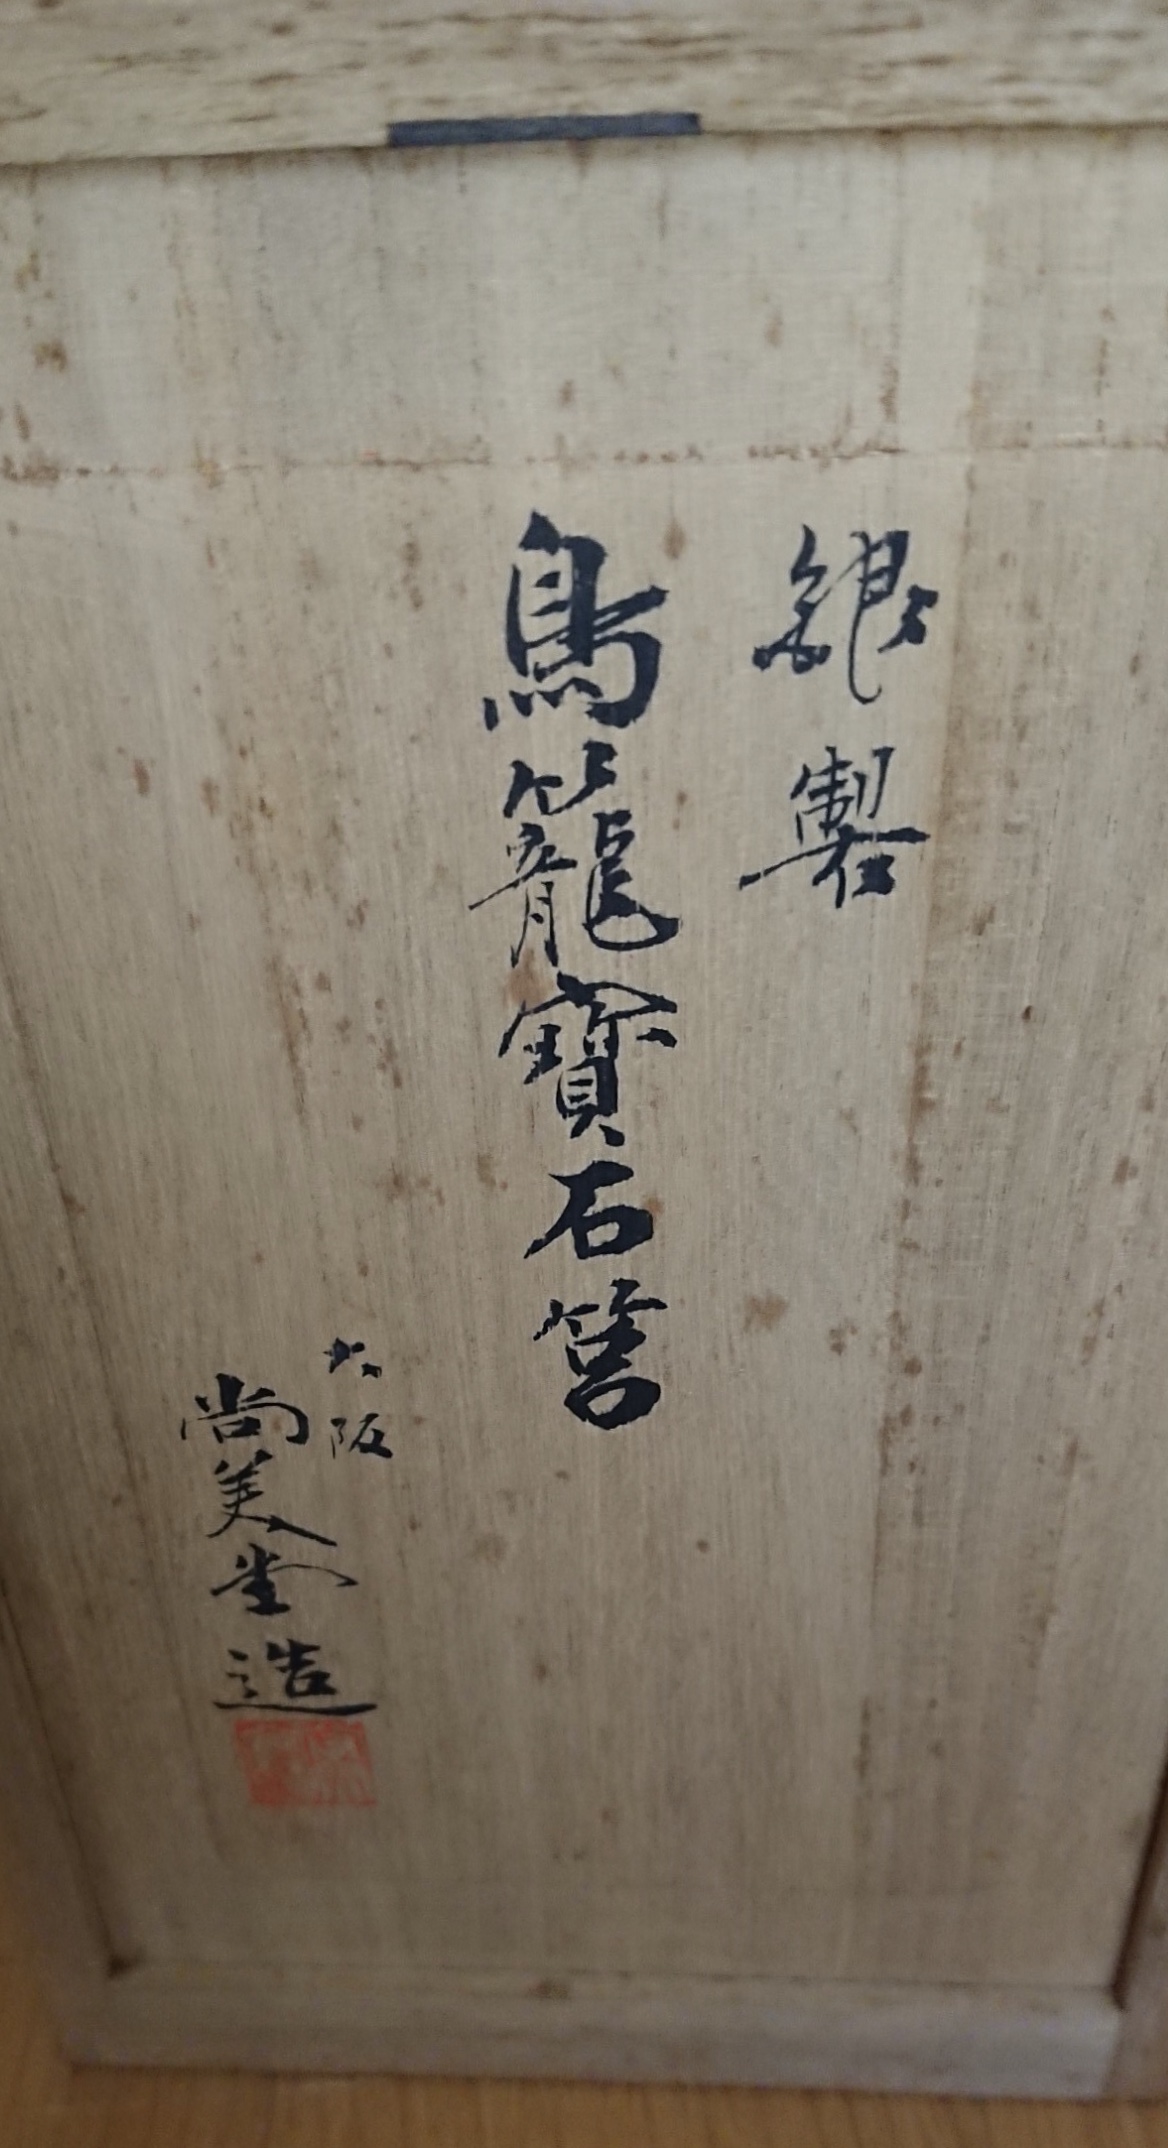 銀製
鳥籠寳石筥
大阪
尚美堂造